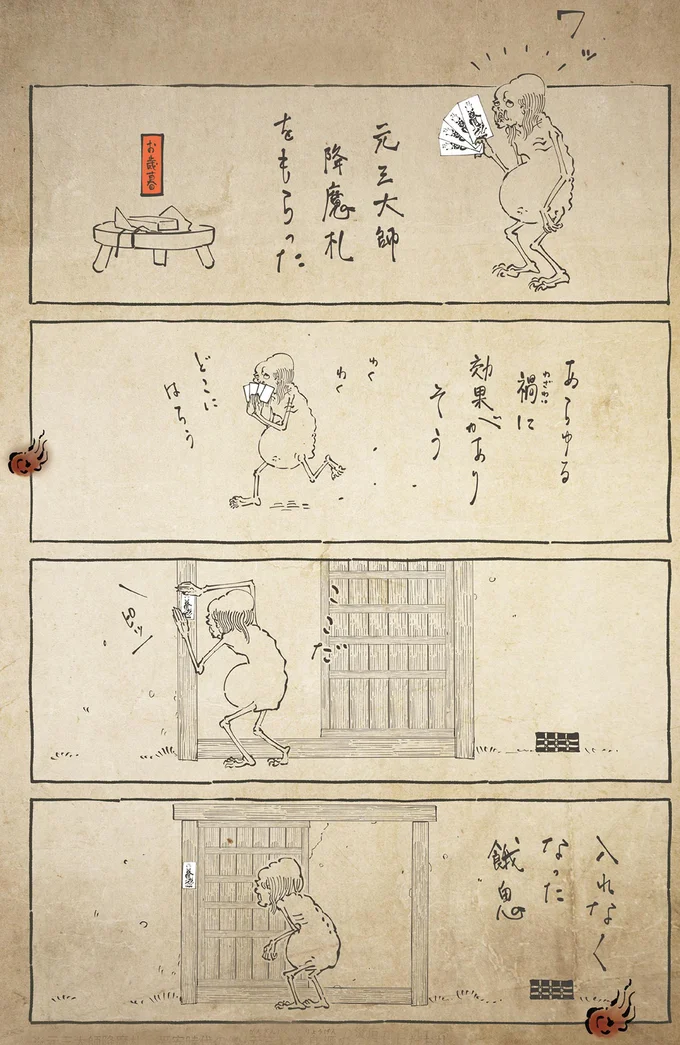 ワッ
元三大師
降魔札
をもらった
お歳暮
あらゆる
禍に
わざわい
効果があり
そう
わく
わく
どこに
はろう
ここだ
ピッ
入れなく
なった
餓鬼